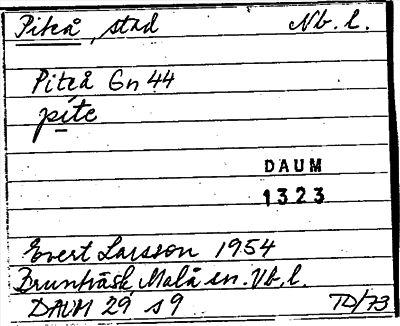 Piteå, stad Nb. l.
Piteå Gn 44
pite
DAUM
1323
Evert Larsson 1954
Brunträsk, Malå sn. Vb. l.
DAUM 29 s 9 TD/73